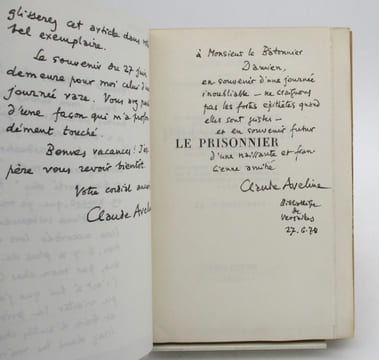 glisserez cet article dans votre
bel exemplaire.
Le souvenir du 27 juin
demeure pour moi celui d'une
journée rare. Vous avez parlé
d'une façon qui m'a profon-
dément touché.
Bonnes vacances! J'es-
père vous revoir bientôt.
Votre cordial
Claude Aveline
à Monsieur le Bâtonnier
Damien,
en souvenir d'une journée
inoubliable — ne craignons
pas les fortes épithètes quand
elles sont justes —
et en souvenir futur
LE PRISONNIER
d'une naissante et
amitié
Claude Aveline
Bibliothèque
de
Versailles
27.6.78